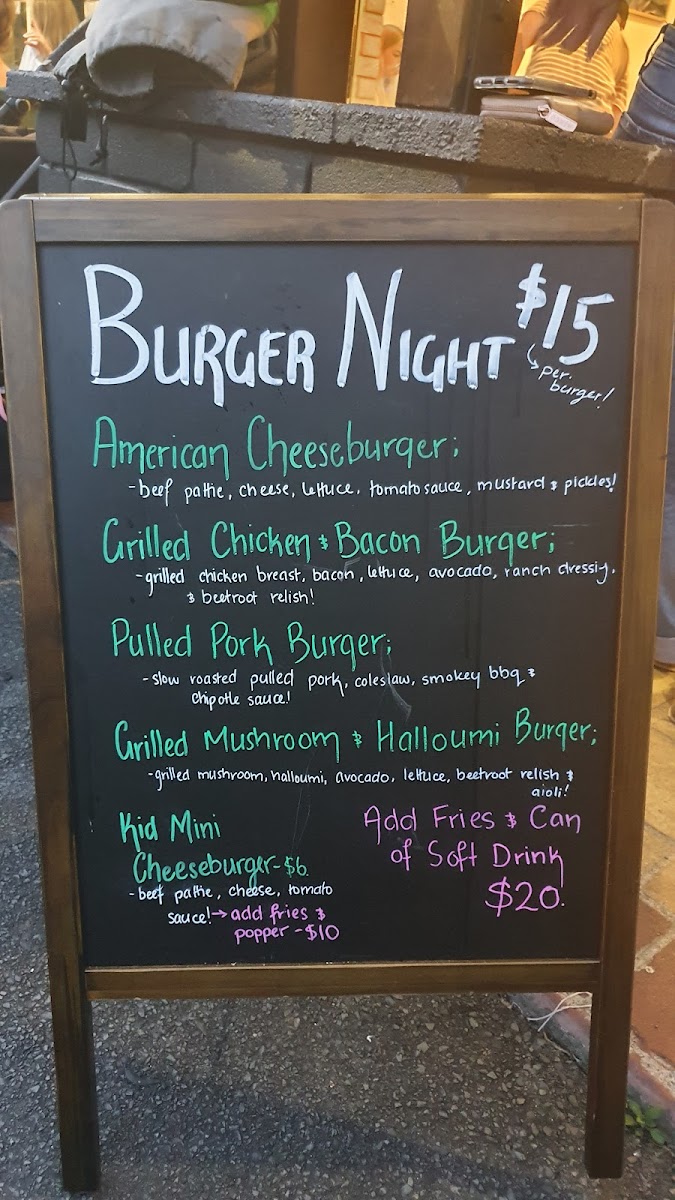 BURGER NIGHT $15
per burger!
American Cheeseburger;
-beef pattie, cheese, lettuce, tomato sauce, mustard & pickles!
Grilled Chicken & Bacon Burger;
-grilled chicken breast, bacon, lettuce, avocado, ranch dressing,
& beetroot relish!
Pulled Pork Burger;
-slow roasted pulled pork, coleslaw, smokey bbq &
chipotle sauce!
Grilled Mushroom & Halloumi Burger;
-grilled mushroom, halloumi, avocado, lettuce, beetroot relish &
aioli!
Kid Mini
Cheeseburger-$6.
-beef pattie, cheese, tomato
sauce!→add fries &
popper -$10
Add Fries & Can
of Soft Drink
$20.